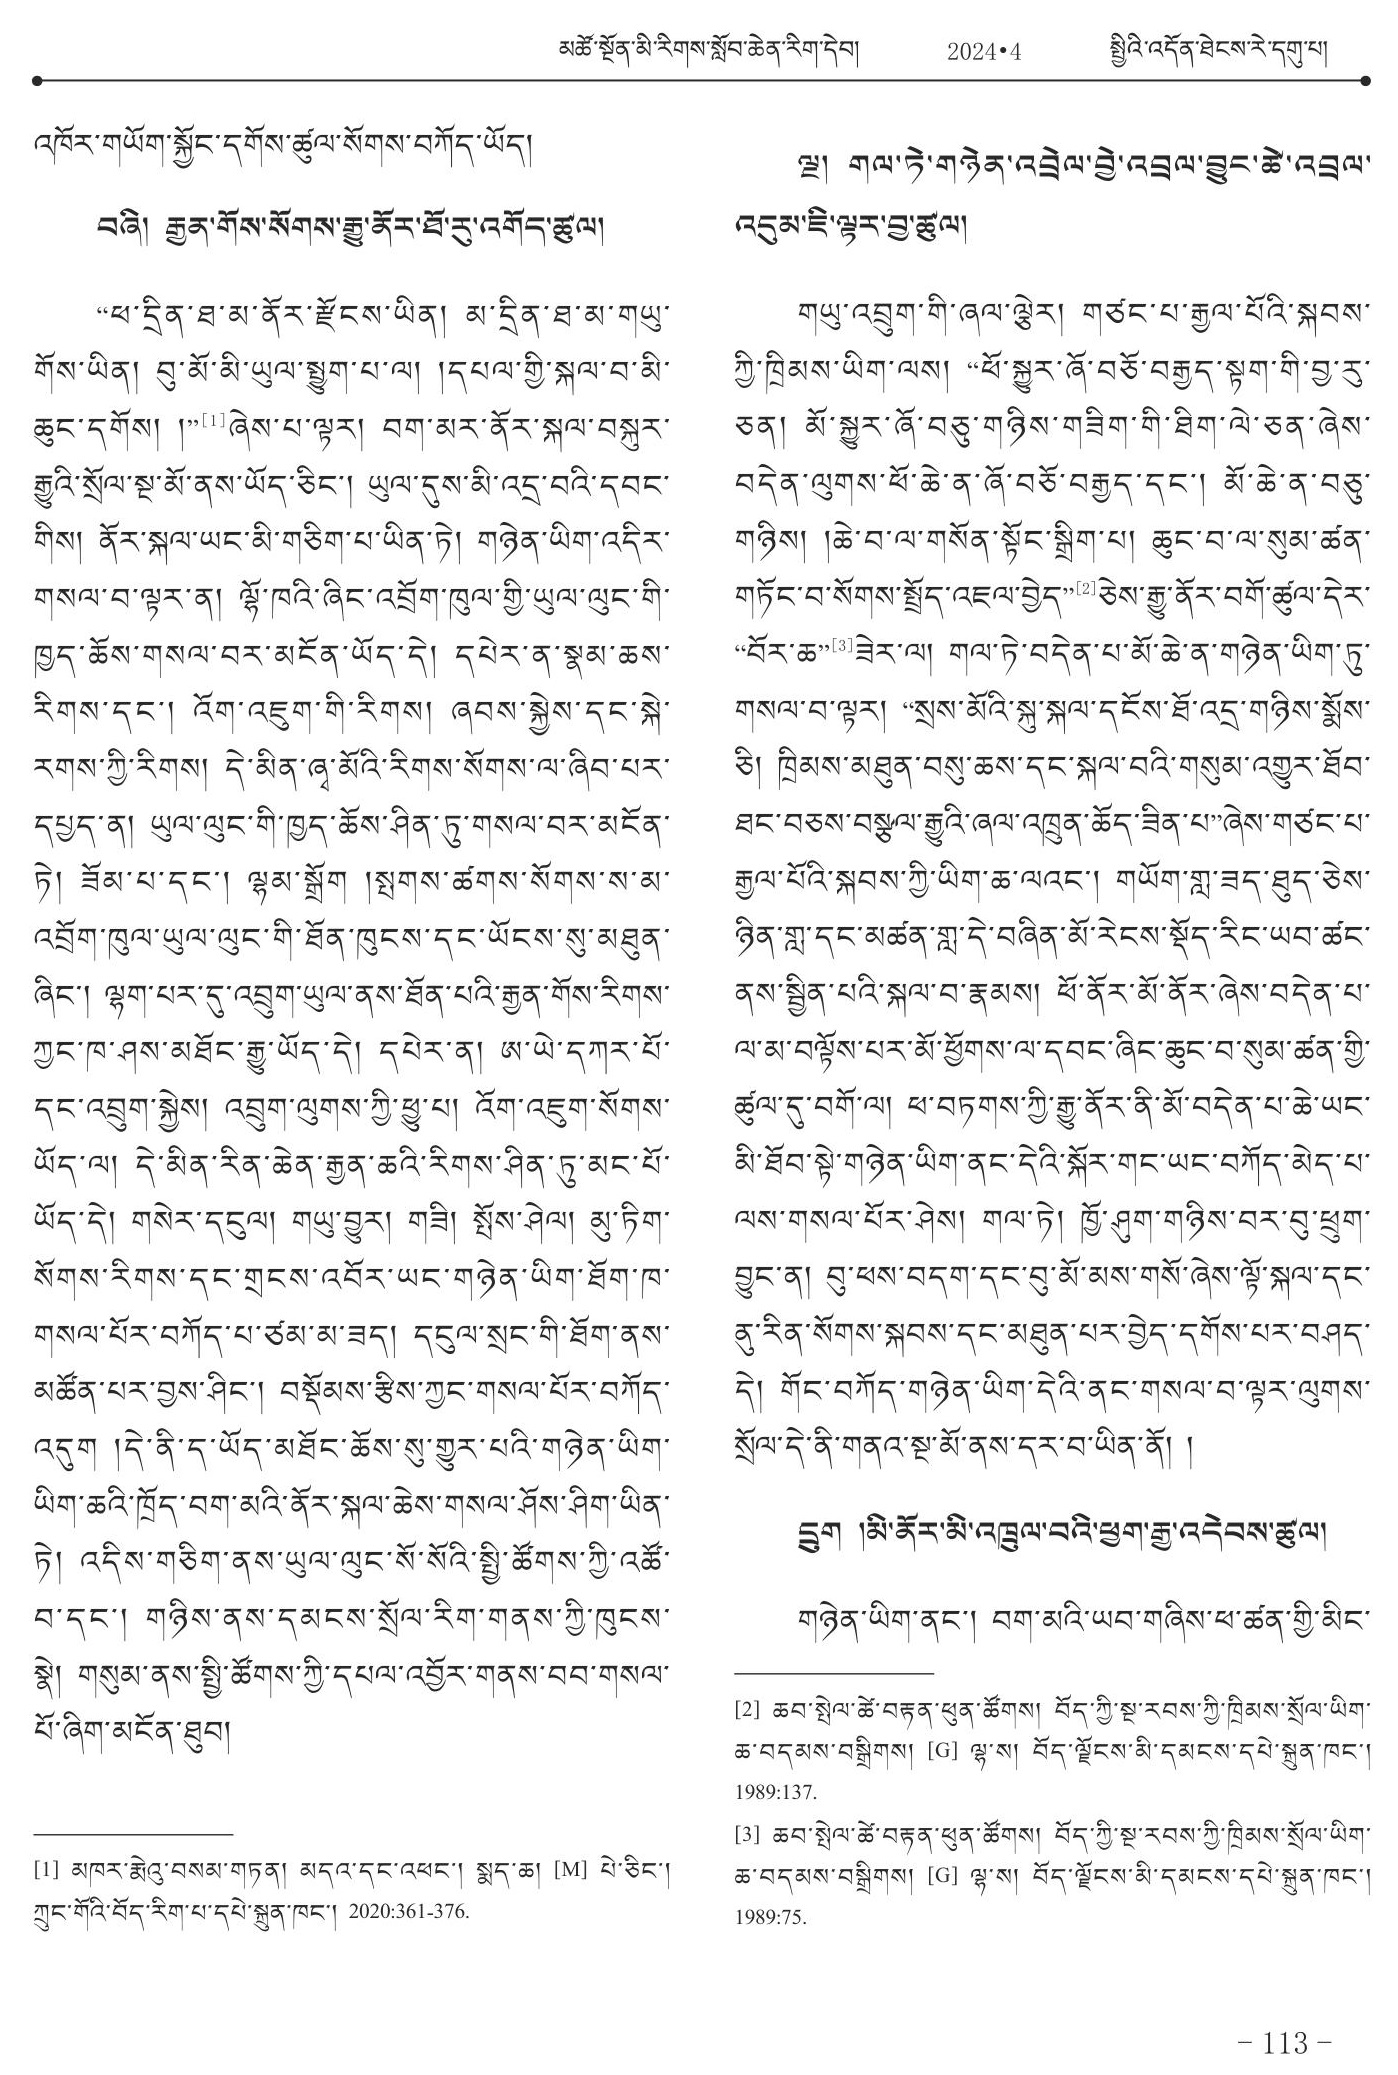 མཚོ་སྔོན་མི་རིགས་སློབ་ཆེན་རིག་དེབ། 2024•4 སྤྱིའི་འདོན་ཐེངས་རེ་དགུ་པ།
འཁོར་གཡོག་སྐྱོང་དགོས་ཚུལ་སོགས་བཀོད་ཡོད།
བཞི། རྒྱན་གོས་སོགས་རྒྱུ་ནོར་ཐོ་རུ་འགོད་ཚུལ།
“ཕ་དྲིན་ཐ་མ་ནོར་རྫོངས་ཡིན། མ་དྲིན་ཐ་མ་གཡུ་
གོས་ཡིན། བུ་མོ་མི་ཡུལ་སྤྱུག་པ་ལ། །དཔལ་གྱི་སྐལ་བ་མི་
ཆུང་དགོས། །”[1]ཞེས་པ་ལྟར། བག་མར་ནོར་སྐལ་བསྐུར་
རྒྱུའི་སྲོལ་སྔ་མོ་ནས་ཡོད་ཅིང་། ཡུལ་དུས་མི་འདྲ་བའི་དབང་
གིས། ནོར་སྐལ་ཡང་མི་གཅིག་པ་ཡིན་ཏེ། གཉེན་ཡིག་འདིར་
གསལ་བ་ལྟར་ན། ལྷོ་ཁའི་ཞིང་འབྲོག་ཁུལ་གྱི་ཡུལ་ལུང་གི་
ཁྱད་ཆོས་གསལ་བར་མངོན་ཡོད་དེ། དཔེར་ན་སྣམ་ཆས་
རིགས་དང་། འོག་འཇུག་གི་རིགས། ཞབས་སྐྱེས་དང་སྐེ་
རགས་ཀྱི་རིགས། དེ་མིན་ཞྭ་མོའི་རིགས་སོགས་ལ་ཞིབ་པར་
དཔྱད་ན། ཡུལ་ལུང་གི་ཁྱད་ཆོས་ཤིན་ཏུ་གསལ་བར་མངོན་
ཏེ། ཟོམ་པ་དང་། ལྷམ་སྒྲོག །སྤགས་ཚགས་སོགས་ས་མ་
འབྲོག་ཁུལ་ཡུལ་ལུང་གི་ཐོན་ཁུངས་དང་ཡོངས་སུ་མཐུན་
ཞིང་། ལྷག་པར་དུ་འབྲུག་ཡུལ་ནས་ཐོན་པའི་རྒྱན་གོས་རིགས་
ཀྱང་ཁ་ཤས་མཐོང་རྒྱུ་ཡོད་དེ། དཔེར་ན། ཨ་ཡེ་དཀར་པོ་
དང་འབྲུག་སྐྱེས། འབྲུག་ལུགས་ཀྱི་ཕྱུ་པ། འོག་འཇུག་སོགས་
ཡོད་ལ། དེ་མིན་རིན་ཆེན་རྒྱན་ཆའི་རིགས་ཤིན་ཏུ་མང་པོ་
ཡོད་དེ། གསེར་དངུལ། གཡུ་བྱུར། གཟི། སྤོས་ཤེལ། མུ་ཏིག་
སོགས་རིགས་དང་གྲངས་འབོར་ཡང་གཉེན་ཡིག་ཐོག་ཁ་
གསལ་པོར་བཀོད་པ་ཙམ་མ་ཟད། དངུལ་སྲང་གི་ཐོག་ནས་
མཚོན་པར་བྱས་ཤིང་། བསྡོམས་རྩིས་ཀྱང་གསལ་པོར་བཀོད་
འདུག །དེ་ནི་ད་ཡོད་མཐོང་ཆོས་སུ་གྱུར་པའི་གཉེན་ཡིག་
ཡིག་ཆའི་ཁྲོད་བག་མའི་ནོར་སྐལ་ཆེས་གསལ་ཤོས་ཤིག་ཡིན་
ཏེ། འདིས་གཅིག་ནས་ཡུལ་ལུང་སོ་སོའི་སྤྱི་ཚོགས་ཀྱི་འཚོ་
བ་དང་། གཉིས་ནས་དམངས་སྲོལ་རིག་གནས་ཀྱི་ཁུངས་
སྣེ། གསུམ་ནས་སྤྱི་ཚོགས་ཀྱི་དཔལ་འབྱོར་གནས་བབ་གསལ་
པོ་ཞིག་མངོན་ཐུབ།
[1] མཁར་རྨེའུ་བསམ་གཏན། མདའ་དང་འཕང་། སྨད་ཆ། [M] པེ་ཅིང་།
ཀྲུང་གོའི་བོད་རིག་པ་དཔེ་སྐྲུན་ཁང་། 2020:361-376.
ལྔ། གལ་ཏེ་གཉེན་འབྲེལ་བྱེ་འབྲལ་བྱུང་ཚེ་འབྲལ་
འདུམ་ཇི་ལྟར་བྱ་ཚུལ།
གཡུ་འབྲུག་གི་ཞལ་ལྕེར། གཙང་པ་རྒྱལ་པོའི་སྐབས་
ཀྱི་ཁྲིམས་ཡིག་ལས། “ཕོ་སྐྱུར་ཞོ་བཅོ་བརྒྱད་སྟག་གི་བྱ་རུ་
ཅན། མོ་སྐྱུར་ཞོ་བཅུ་གཉིས་གཟིག་གི་ཐིག་ལེ་ཅན་ཞེས་
བདེན་ལུགས་ཕོ་ཆེ་ན་ཞོ་བཅོ་བརྒྱད་དང་། མོ་ཆེ་ན་བཅུ་
གཉིས། །ཆེ་བ་ལ་གསོན་སྟོང་སྒྲིག་པ། ཆུང་བ་ལ་སུམ་ཚན་
གཏོང་བ་སོགས་སྤྲོད་འཇལ་བྱེད”[2]ཅེས་རྒྱུ་ནོར་བགོ་ཚུལ་དེར་
“བོར་ཆ”[3]ཟེར་ལ། གལ་ཏེ་བདེན་པ་མོ་ཆེ་ན་གཉེན་ཡིག་ཏུ་
གསལ་བ་ལྟར། “སྲས་མོའི་སྐུ་སྐལ་དངོས་ཐོ་འདྲ་གཉིས་སྨོས་
ཅི། ཁྲིམས་མཐུན་བསུ་ཆས་དང་སྐལ་བའི་གསུམ་འགྱུར་ཐོབ་
ཐང་བཅས་བསྩལ་རྒྱུའི་ཞལ་འཁྲུན་ཆོད་ཟིན་པ”ཞེས་གཙང་པ་
རྒྱལ་པོའི་སྐབས་ཀྱི་ཡིག་ཆ་ལའང་། གཡོག་གླ་ཟད་ཐུད་ཅེས་
ཉིན་གླ་དང་མཚན་གླ་དེ་བཞིན་མོ་རེངས་སྡོད་རིང་ཡབ་ཚང་
ནས་སྦྱིན་པའི་སྐལ་བ་རྣམས། ཕོ་ནོར་མོ་ནོར་ཞེས་བདེན་པ་
ལ་མ་བལྟོས་པར་མོ་ཕྱོགས་ལ་དབང་ཞིང་ཆུང་བ་སུམ་ཚན་གྱི་
ཚུལ་དུ་བགོ་ལ། ཕ་བཏགས་ཀྱི་རྒྱུ་ནོར་ནི་མོ་བདེན་པ་ཆེ་ཡང་
མི་ཐོབ་སྟེ་གཉེན་ཡིག་ནང་དེའི་སྐོར་གང་ཡང་བཀོད་མེད་པ་
ལས་གསལ་པོར་ཤེས། གལ་ཏེ། ཁྱོ་ཤུག་གཉིས་བར་བུ་ཕྲུག་
བྱུང་ན། བུ་ཕས་བདག་དང་བུ་མོ་མས་གསོ་ཞེས་ལྟོ་སྐལ་དང་
ནུ་རིན་སོགས་སྐབས་དང་མཐུན་པར་བྱེད་དགོས་པར་བཤད་
དེ། གོང་བཀོད་གཉེན་ཡིག་དེའི་ནང་གསལ་བ་ལྟར་ལུགས་
སྲོལ་དེ་ནི་གནའ་སྔ་མོ་ནས་དར་བ་ཡིན་ནོ། །
དྲུག །མི་ནོར་མི་འཁྲུལ་བའི་ཕྱག་རྒྱ་འདེབས་ཚུལ།
གཉེན་ཡིག་ནང་། བག་མའི་ཡབ་གཞིས་ཕ་ཚན་གྱི་མིང་
[2] ཆབ་སྤེལ་ཚེ་བརྟན་ཕུན་ཚོགས། བོད་ཀྱི་སྔ་རབས་ཀྱི་ཁྲིམས་སྲོལ་ཡིག་
ཆ་བདམས་བསྒྲིགས། [G] ལྷ་ས། བོད་ལྗོངས་མི་དམངས་དཔེ་སྐྲུན་ཁང་།
1989:137.
[3] ཆབ་སྤེལ་ཚེ་བརྟན་ཕུན་ཚོགས། བོད་ཀྱི་སྔ་རབས་ཀྱི་ཁྲིམས་སྲོལ་ཡིག་
ཆ་བདམས་བསྒྲིགས། [G] ལྷ་ས། བོད་ལྗོངས་མི་དམངས་དཔེ་སྐྲུན་ཁང་།
1989:75.
– 113 –